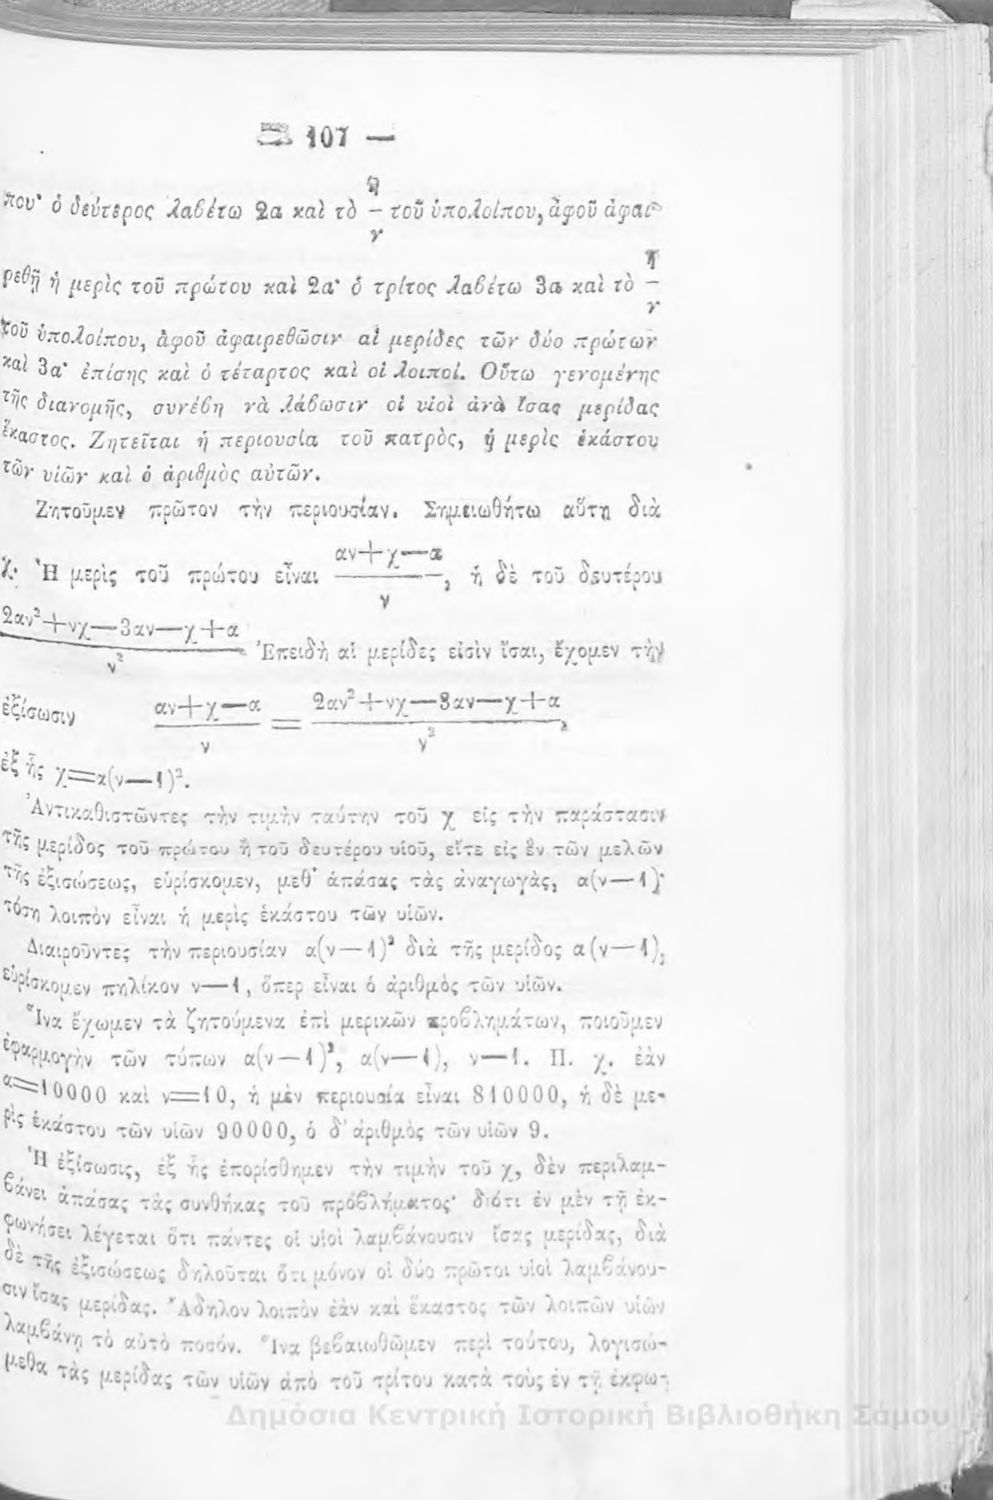 — 107 —
που· ὁ δεύτερος λαβέτω 2α καὶ τὸ 1/ν τοῦ ὑπολοίπου, ἀφοῦ ἀφαι-
ρεθῇ ἡ μερὶς τοῦ πρώτου καὶ 2α· ὁ τρίτος λαβέτω 3α καὶ τὸ 1/ν
τοῦ ὑπολοίπου, ἀφοῦ ἀφαιρεθῶσιν αἱ μερίδες τῶν δύο πρώτων
καὶ 3α· ἐπίσης καὶ ὁ τέταρτος καὶ οἱ λοιποί. Οὕτω γενομένης
τῆς διανομῆς, συνέβη νὰ λάβωσιν οἱ υἱοὶ ἀνὰ ἴσας μερίδας
ἕκαστος. Ζητεῖται ἡ περιουσία τοῦ πατρὸς, ἡ μερὶς ἑκάστου
τῶν υἱῶν καὶ ὁ ἀριθμὸς αὐτῶν.
Ζητοῦμεν πρῶτον τὴν περιουσίαν. Σημειωθήτω αὕτη διὰ
χ. Ἡ μερὶς τοῦ πρώτου εἶναι (αν+χ—α)/ν, ἡ δὲ τοῦ δευτέρου
(2αν²+νχ—3αν—χ+α)/ν² Ἐπειδὴ αἱ μερίδες εἰσὶν ἴσαι, ἔχομεν τὴν
ἐξίσωσιν (αν+χ—α)/ν = (2αν²+νχ—3αν—χ+α)/ν²,
ἐξ ἧς χ=α(ν—1)².
Ἀντικαθιστῶντες τὴν τιμὴν ταύτην τοῦ χ εἰς τὴν παράστασιν
τῆς μερίδος τοῦ πρώτου ἢ τοῦ δευτέρου υἱοῦ, εἴτε εἰς ἓν τῶν μελῶν
τῆς ἐξισώσεως, εὑρίσκομεν, μεθ' ἁπάσας τὰς ἀναγωγὰς, α(ν—1)·
τόση λοιπὸν εἶναι ἡ μερὶς ἑκάστου τῶν υἱῶν.
Διαιροῦντες τὴν περιουσίαν α(ν—1)² διὰ τῆς μερίδος α(ν—1),
εὑρίσκομεν πηλίκον ν—1, ὅπερ εἶναι ὁ ἀριθμὸς τῶν υἱῶν.
Ἵνα ἔχωμεν τὰ ζητούμενα ἐπὶ μερικῶν προβλημάτων, ποιοῦμεν
ἐφαρμογὴν τῶν τύπων α(ν—1)², α(ν—1), ν—1. Π. χ. ἐὰν
α=10000 καὶ ν=10, ἡ μὲν περιουσία εἶναι 810000, ἡ δὲ με-
ρὶς ἑκάστου τῶν υἱῶν 90000, ὁ δ' ἀριθμὸς τῶν υἱῶν 9.
Ἡ ἐξίσωσις, ἐξ ἧς ἐπορίσθημεν τὴν τιμὴν τοῦ χ, δὲν περιλαμ-
βάνει ἁπάσας τὰς συνθήκας τοῦ προβλήματος· διότι ἐν μὲν τῇ ἐκ-
φωνήσει λέγεται ὅτι πάντες οἱ υἱοὶ λαμβάνουσιν ἴσας μερίδας, διὰ
δὲ τῆς ἐξισώσεως δηλοῦται ὅτι μόνον οἱ δύο πρῶτοι υἱοὶ λαμβάνου-
σιν ἴσας μερίδας. Ἄδηλον λοιπὸν ἐὰν καὶ ἕκαστος τῶν λοιπῶν υἱῶν
λαμβάνῃ τὸ αὐτὸ ποσόν. Ἵνα βεβαιωθῶμεν περὶ τούτου, λογισώ-
μεθα τὰς μερίδας τῶν υἱῶν ἀπὸ τοῦ τρίτου κατὰ τοὺς ἐν τῇ ἐκφω-
Δημόσια Κεντρική Ιστορική Βιβλιοθήκη Σάμου